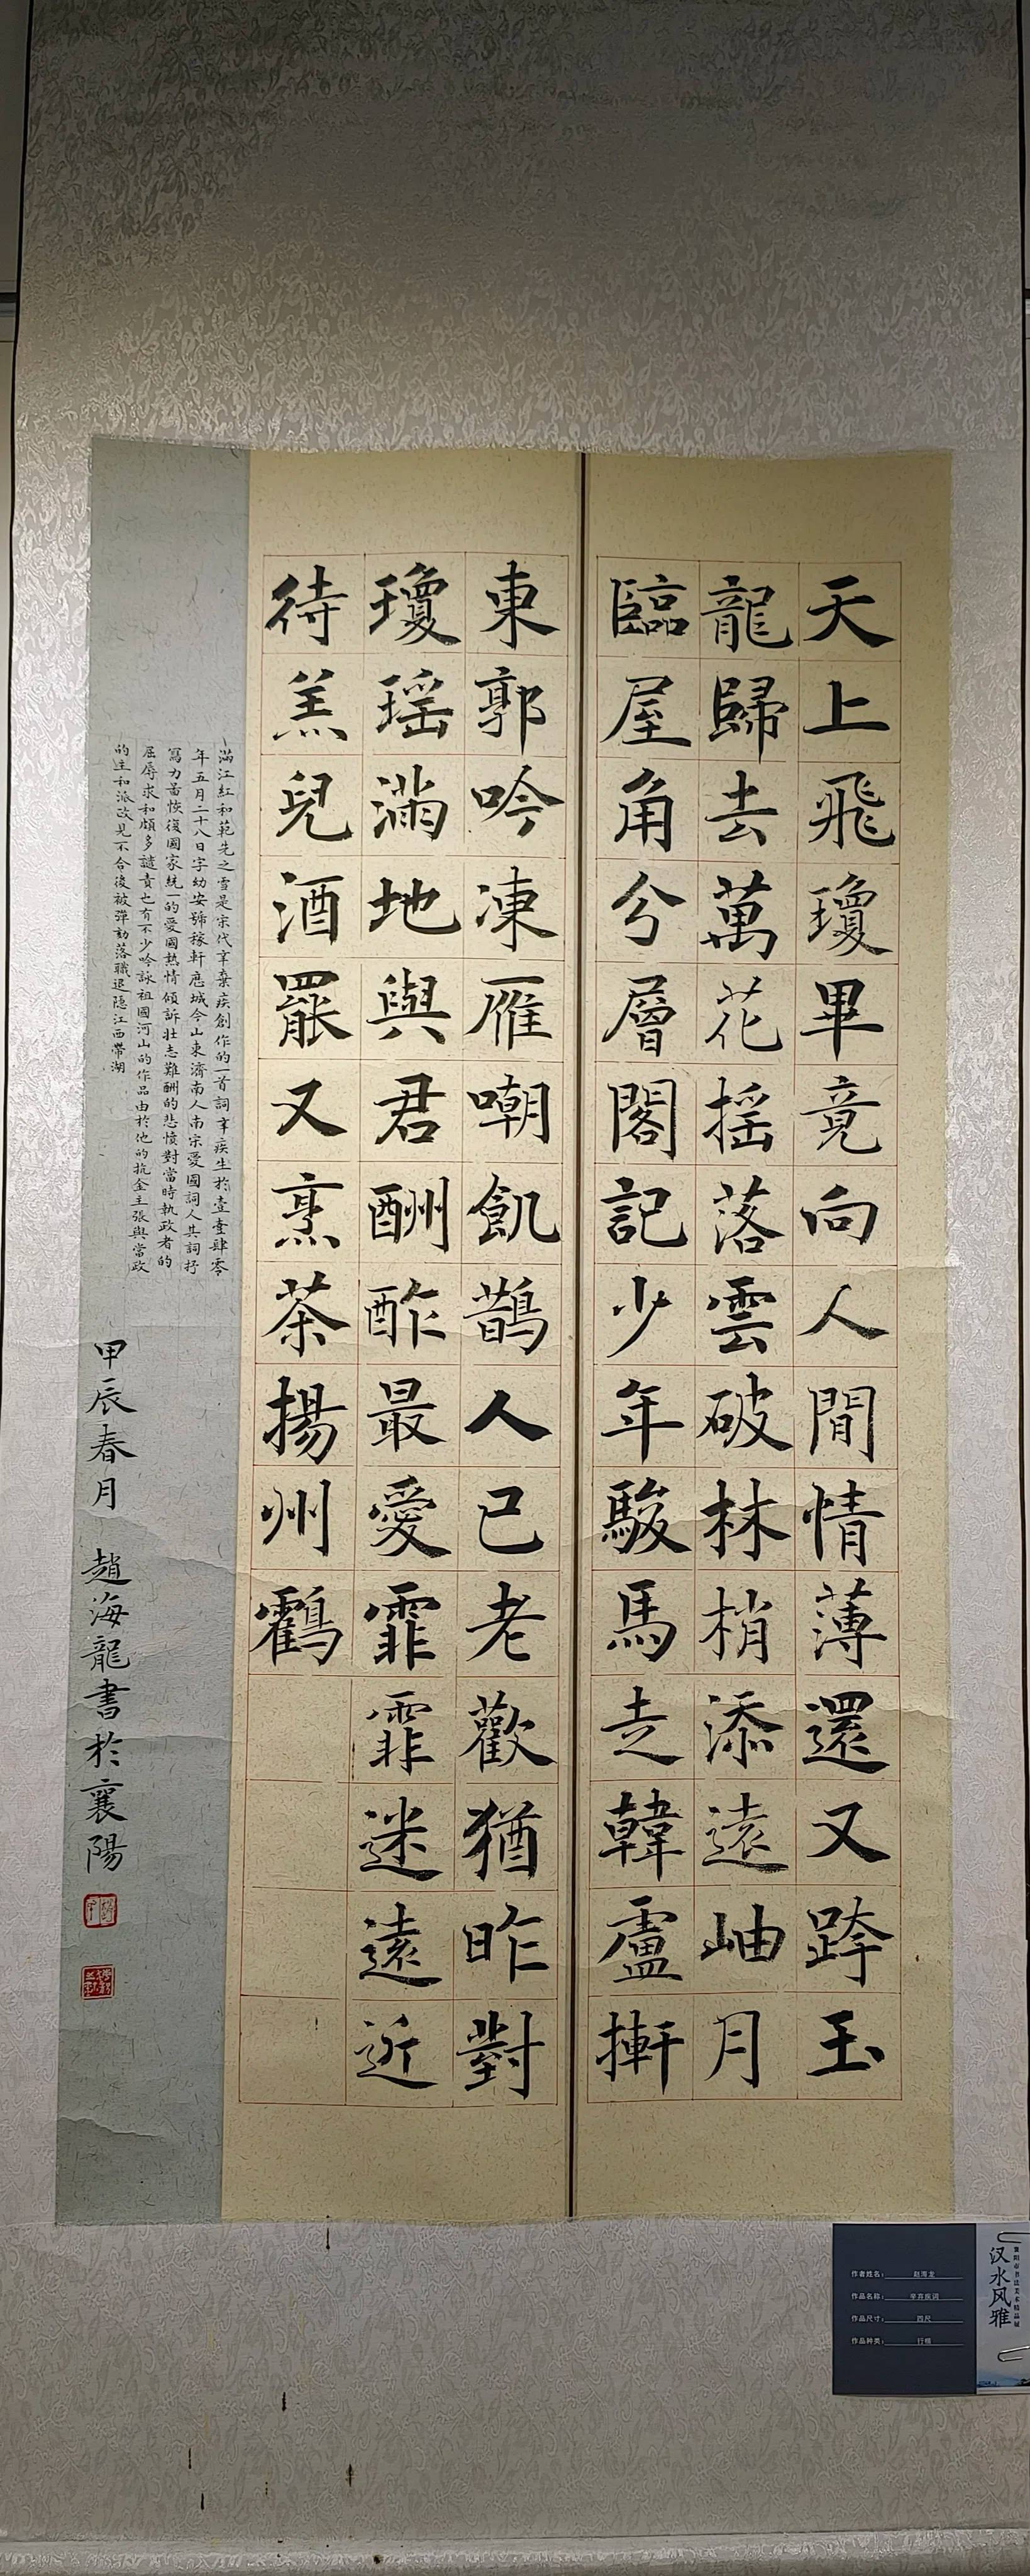 天上飛瓊畢竟向人間情薄還又跨玉
龍歸去萬花摇落雲破林梢添遠岫月
臨屋角分層閣記少年駿馬走韓盧掀
東郭吟凍雁嘲飢鵲人已老歡猶昨對
瓊瑶滿地與君酬酢最愛霏霏迷遠近
待羔兒酒罷又烹茶揚州鶴
滿江紅和範先之雪是宋代辛棄疾創作的一首詞辛疾生於壹壹肆零
年五月二十八日字幼安號稼軒歷城今山東濟南人南宋愛國詞人其詞抒
寫力啚恢復國家統一的愛國熱情傾訴壯志難酬的悲憤對當時執政者的
屈辱求和頗多譴責也有不少吟詠祖國河山的作品由於他的抗金主張與當政
的主和派政見不合後被彈劾落職退隱江西帶湖
甲辰春月 趙海龍書於襄陽
作者姓名：赵海龙
作品名称：辛弃疾词
作品尺寸：四尺
作品种类：行楷
襄阳市书法美术精品展
汉水风雅